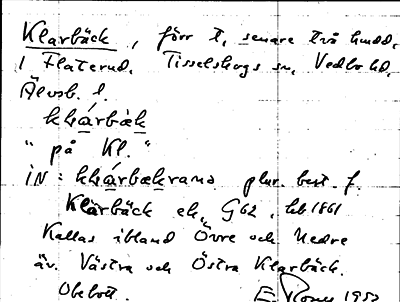 Klarbäck, förr t, senare två hundd.
i Flaterud, Tisselskogs sn, Vedbo hd,
Älvsb. l.
khárbäk
" på Kl. "
iN: khárbækrana plur. best. f.
Klarbäck ek, G62, leb 1861
Kallas ibland Övre och Nedre
äv. Västra och Östra Klarbäck.
Obebott. E. 1952